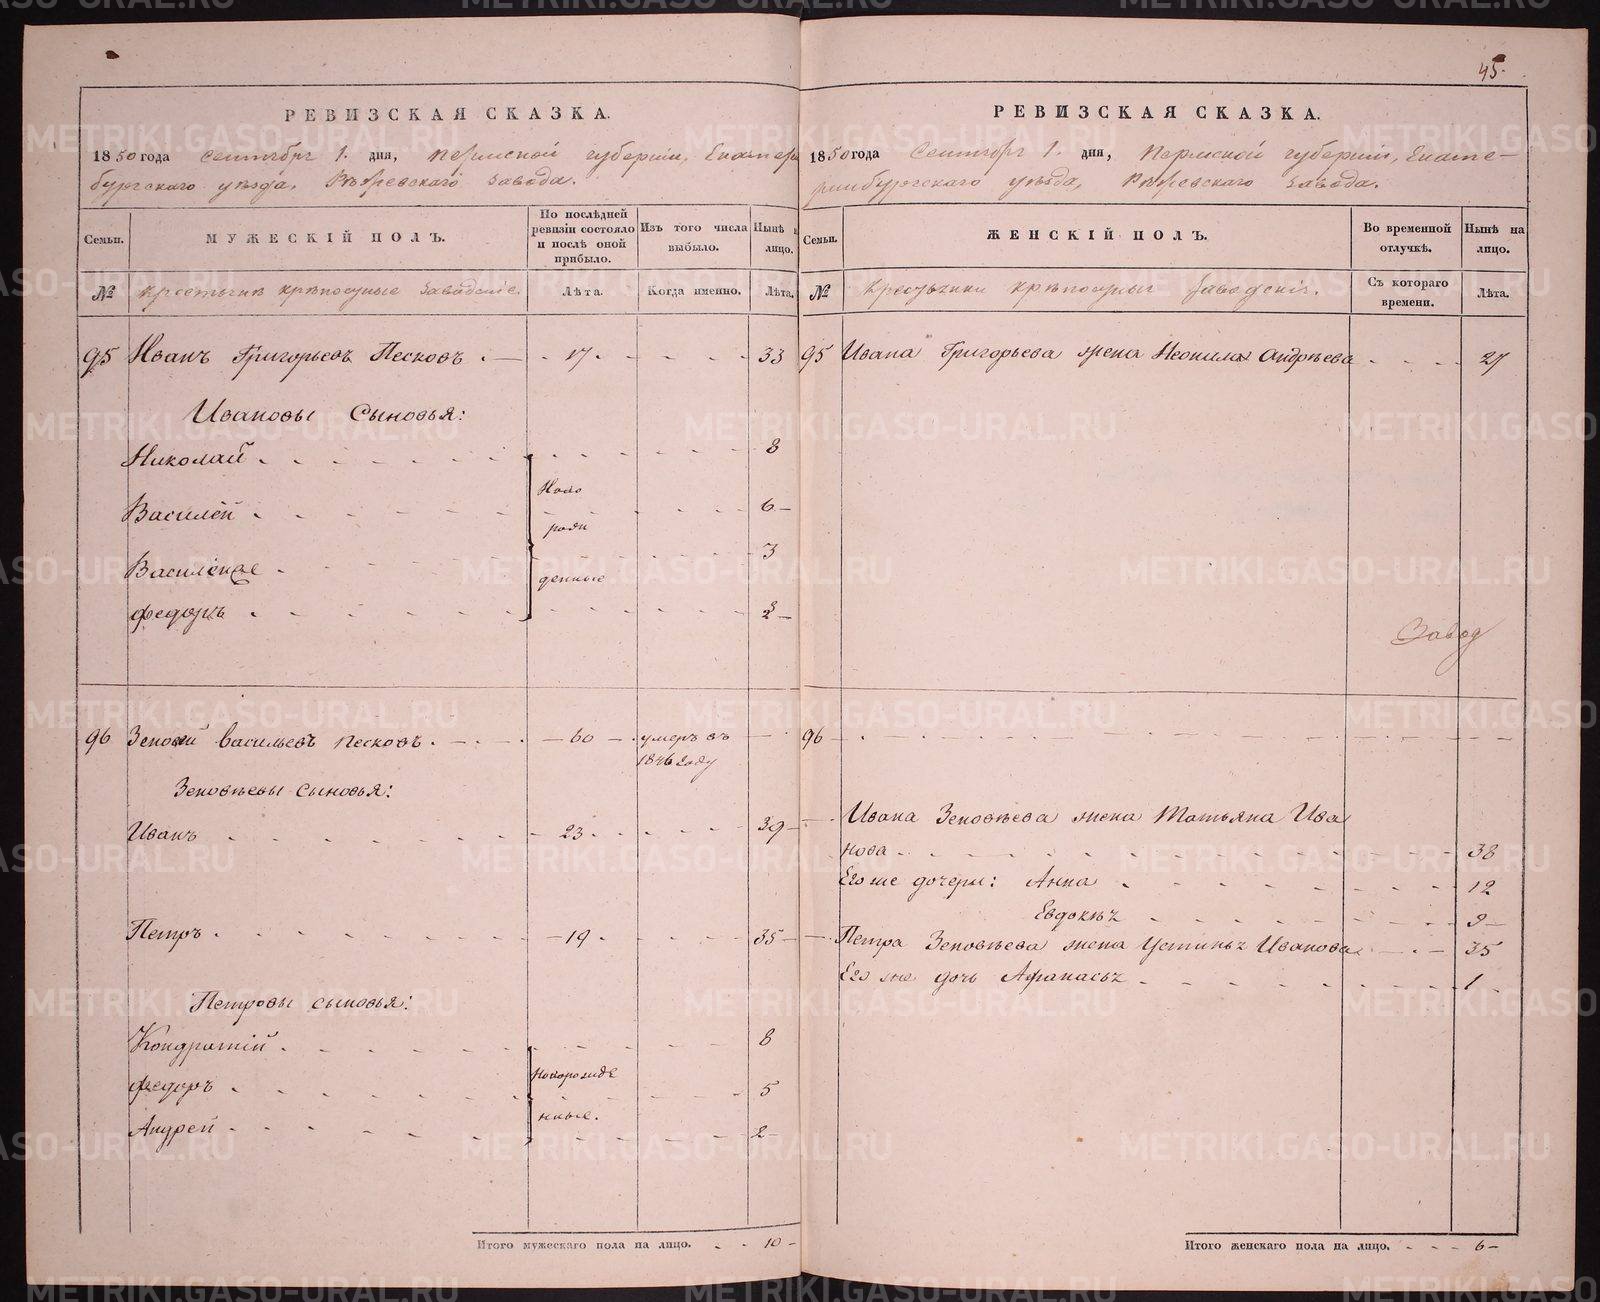 45.
РЕВИЗСКАЯ СКАЗКА.
1850 года сентября 1. дня, Пермской губернии, Екатерин
бургскаго уѣзда, Рѣжевскаго завода.
Семьи. МУЖЕСКІЙ ПОЛЪ. По послѣдней ревизіи состояло и послѣ оной прибыло. Изъ того числа выбыло. Нынѣ на лицо.
№ Крестьяне крѣпостные заводскіе. Лѣта. Когда именно. Лѣта.
95 Иванъ Григорьевъ Песковъ 17 33
Ивановы Сыновья:
Николай 8
Василей 6
Василей же 3
Федоръ 2
Ново
рож
денные
96 Зеновей Васильевъ Песковъ 60 умеръ въ
1846 году
Зеновьевы сыновья:
Иванъ 23 39
Петръ 19 35
Петровы сыновья:
Кондратий 8
Федоръ 5
Андрей 2
Новорожде
нные.
Итого мужескаго пола на лицо. 10
РЕВИЗСКАЯ СКАЗКА.
1850 года Сентября 1. дня, Пермской губернии, Екате-
ринбургскаго уѣзда, Рѣжевскаго завода.
Семьи. ЖЕНСКІЙ ПОЛЪ. Во временной отлучкѣ. Нынѣ на лицо.
№ Крестьянки крѣпостныя заводскія. Съ котораго времени. Лѣта.
95 Ивана Григорьева жена Неонила Андрѣева 27
Завод
96
Ивана Зеновѣева жена Татьяна Ива
нова 38
Его же дочери: Анна 12
Евдокѣя 9
Петра Зеновѣева жена Устинья Иванова 35
Его же дочь Афанасья 1
Итого женскаго пола на лицо. 6
METRIKI.GASO-URAL.RU